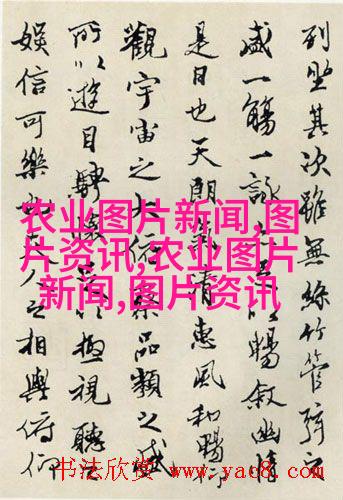 列坐其次雖無絲竹管弦之
盛一觴一詠亦足以暢敘幽情
是日也天朗氣清惠風和暢仰
觀宇宙之大俯察品類之盛
所以遊目騁懷足以極視聽之
娛信可樂也夫人之相與俯仰
农业图片新闻,图
片资讯,农业图片
新闻,图片资讯
书法欣赏 www.yac8.com